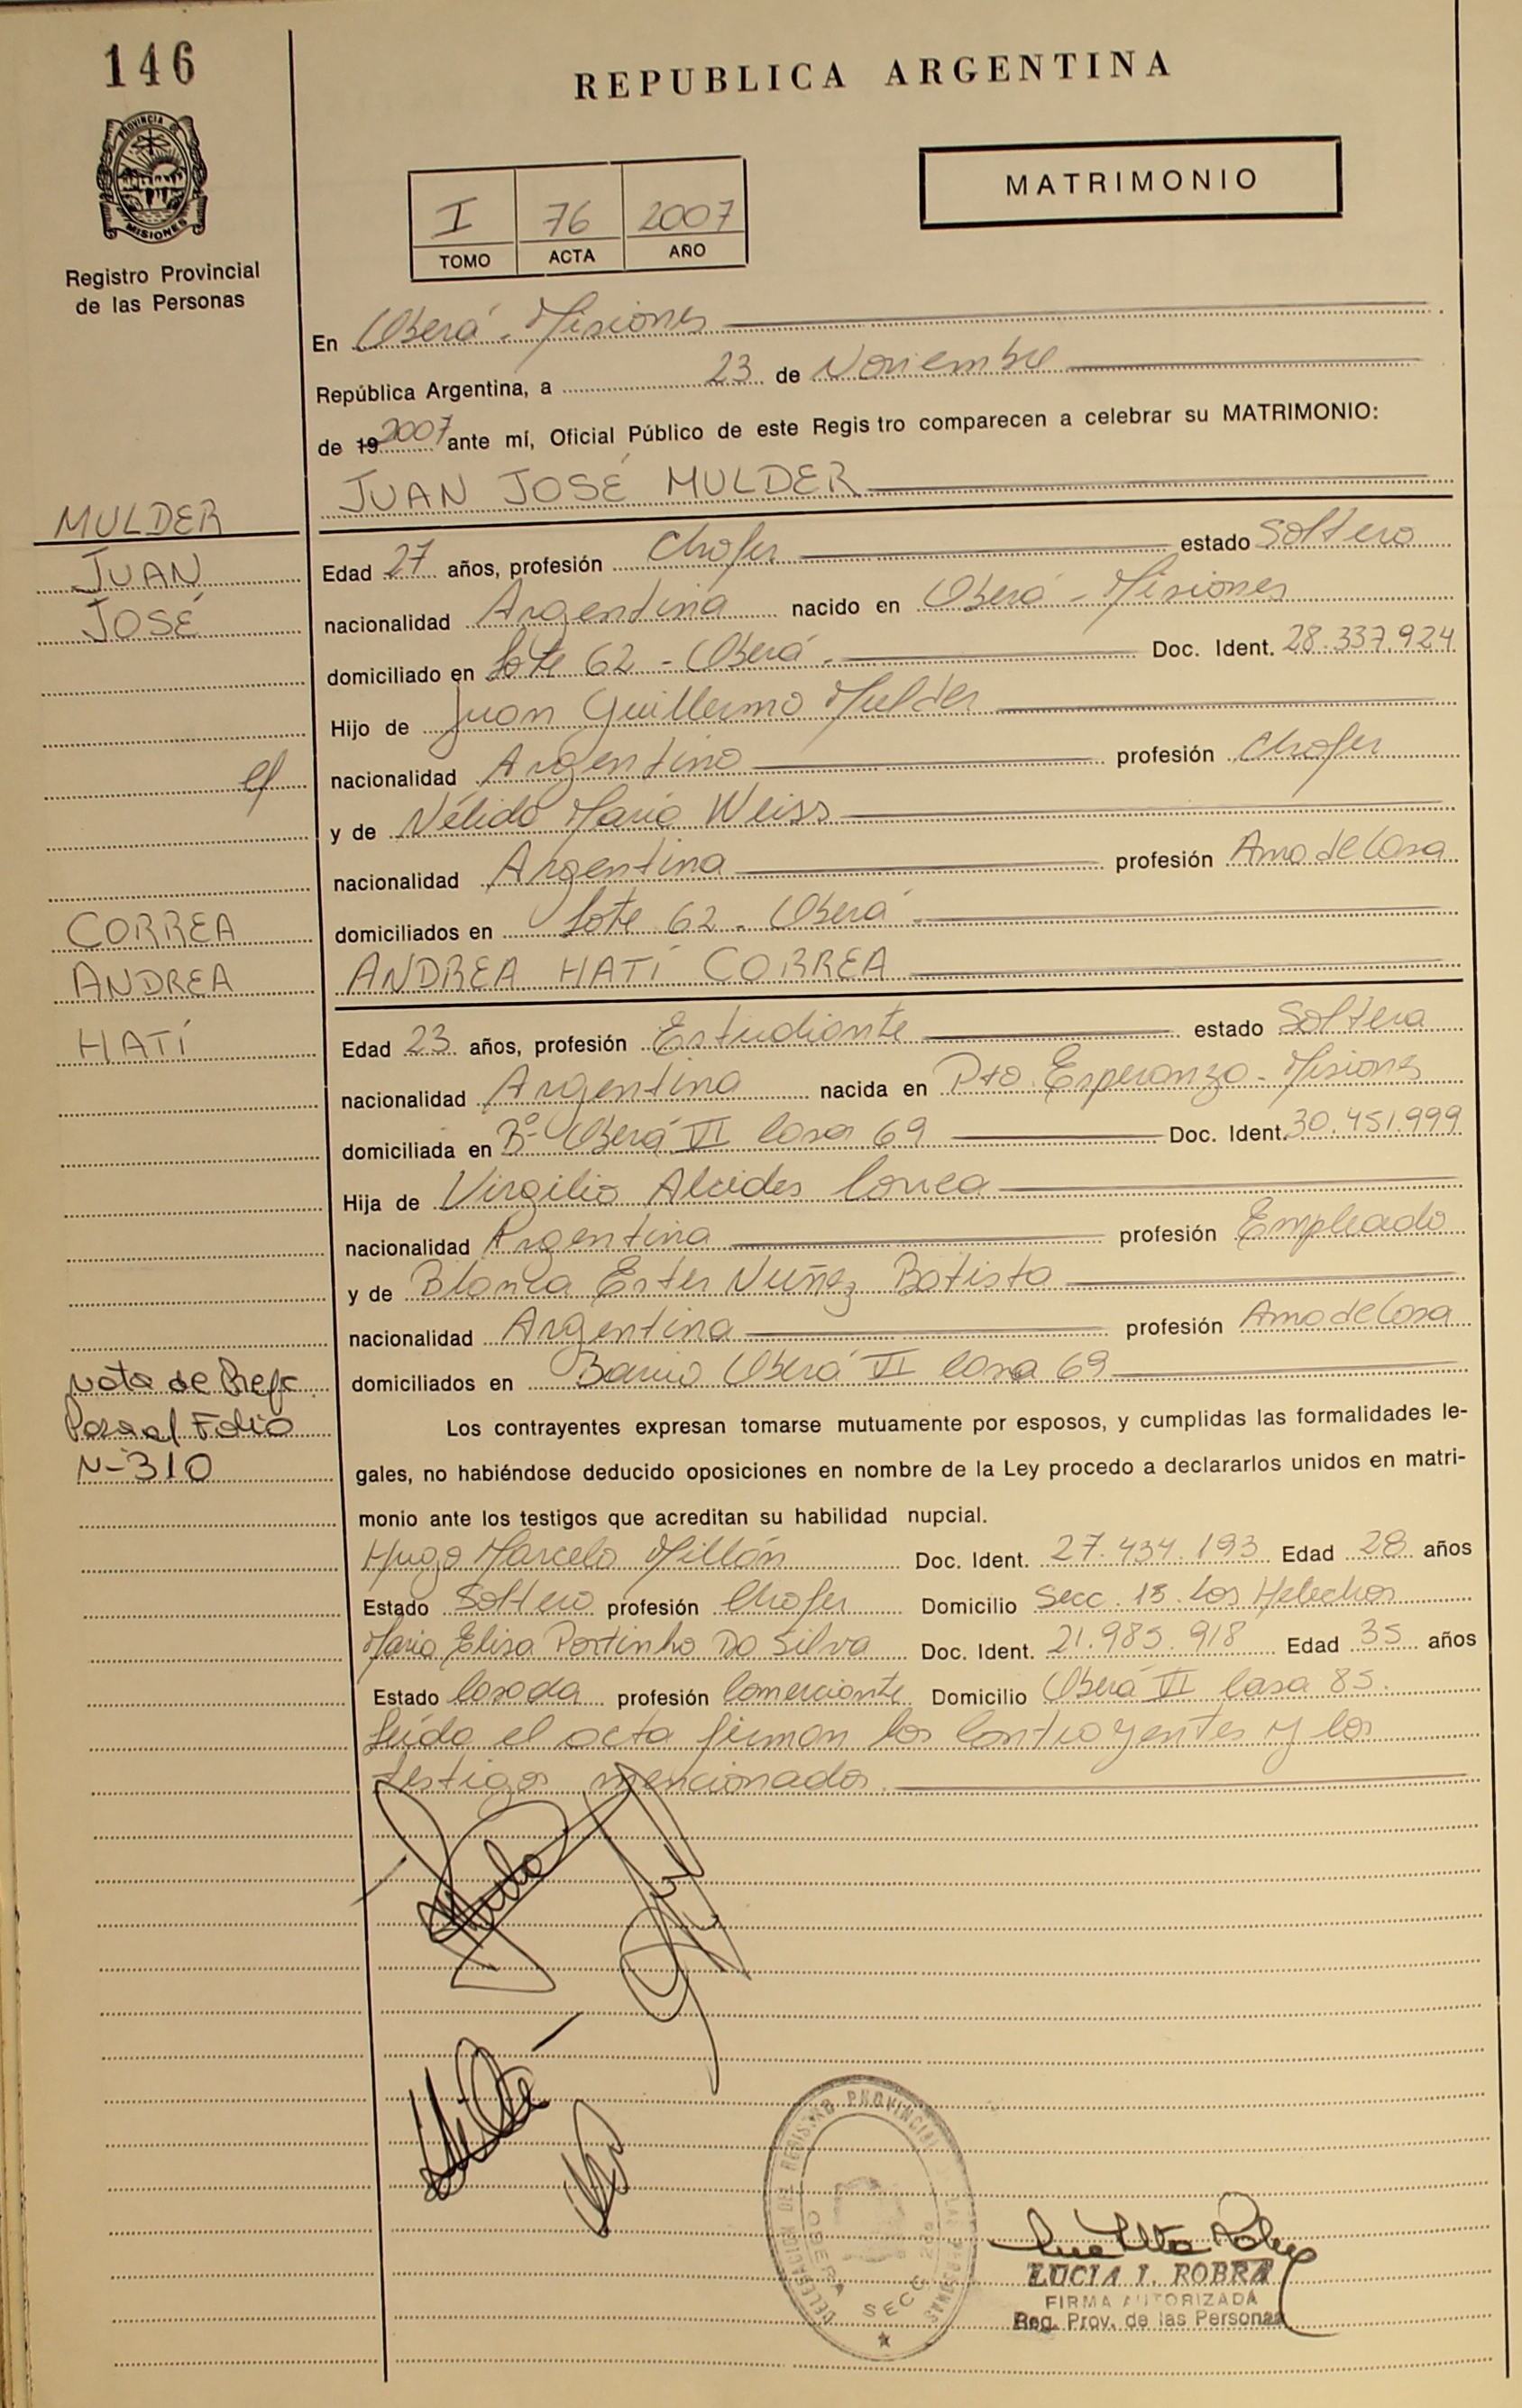 146
REPUBLICA ARGENTINA
PROVINCIA
MISIONES
Registro Provincial
de las Personas
MATRIMONIO
I 76 2007
TOMO ACTA AÑO
En Oberá - Misiones
República Argentina, a 23 de Noviembre
de 19 2007 ante mí, Oficial Público de este Registro comparecen a celebrar su MATRIMONIO:
JUAN JOSÉ MULDER
MULDER
JUAN
JOSÉ
Edad 27 años, profesión Chofer estado Soltero
nacionalidad Argentina nacido en Oberá - Misiones
domiciliado en Lote 62 - Oberá - Doc. Ident. 28.337.924
Hijo de Juan Guillermo Mulder
nacionalidad Argentino profesión Chofer
y de Nélida María Weiss
nacionalidad Argentina profesión Ama de Casa
domiciliados en Lote 62 - Oberá -
CORREA
ANDREA
HATÍ
ANDREA HATÍ CORREA
Edad 23 años, profesión Estudiante estado Soltera
nacionalidad Argentina nacida en Pto. Esperanza - Misiones
domiciliada en Bº Oberá VI Casa 69 Doc. Ident. 30.451.999
Hija de Virgilio Alcides Correa
nacionalidad Argentina profesión Empleado
y de Blanca Ester Nuñez Batista
nacionalidad Argentina profesión Ama de Casa
domiciliados en Barrio Oberá VI Casa 69
Nota de Refe.
Pasa al Folio
N-310
Los contrayentes expresan tomarse mutuamente por esposos, y cumplidas las formalidades le-
gales, no habiéndose deducido oposiciones en nombre de la Ley procedo a declararlos unidos en matri-
monio ante los testigos que acreditan su habilidad nupcial.
Hugo Marcelo Millán Doc. Ident. 27.434.193 Edad 28 años
Estado Soltero profesión Chofer Domicilio Secc. 13. Los Helechos
Maria Elisa Portinho Da Silva Doc. Ident. 21.985.918 Edad 35 años
Estado Casada profesión Comerciante Domicilio Oberá VI Casa 85.
Leída el acta firman los Contrayentes y los
testigos mencionados.
DELEGACION DEL REGISTRO PROVINCIAL DE LAS PERSONAS
OBERA SECC
LUCIA I. ROBRA
FIRMA AUTORIZADA
Reg. Prov. de las Personas